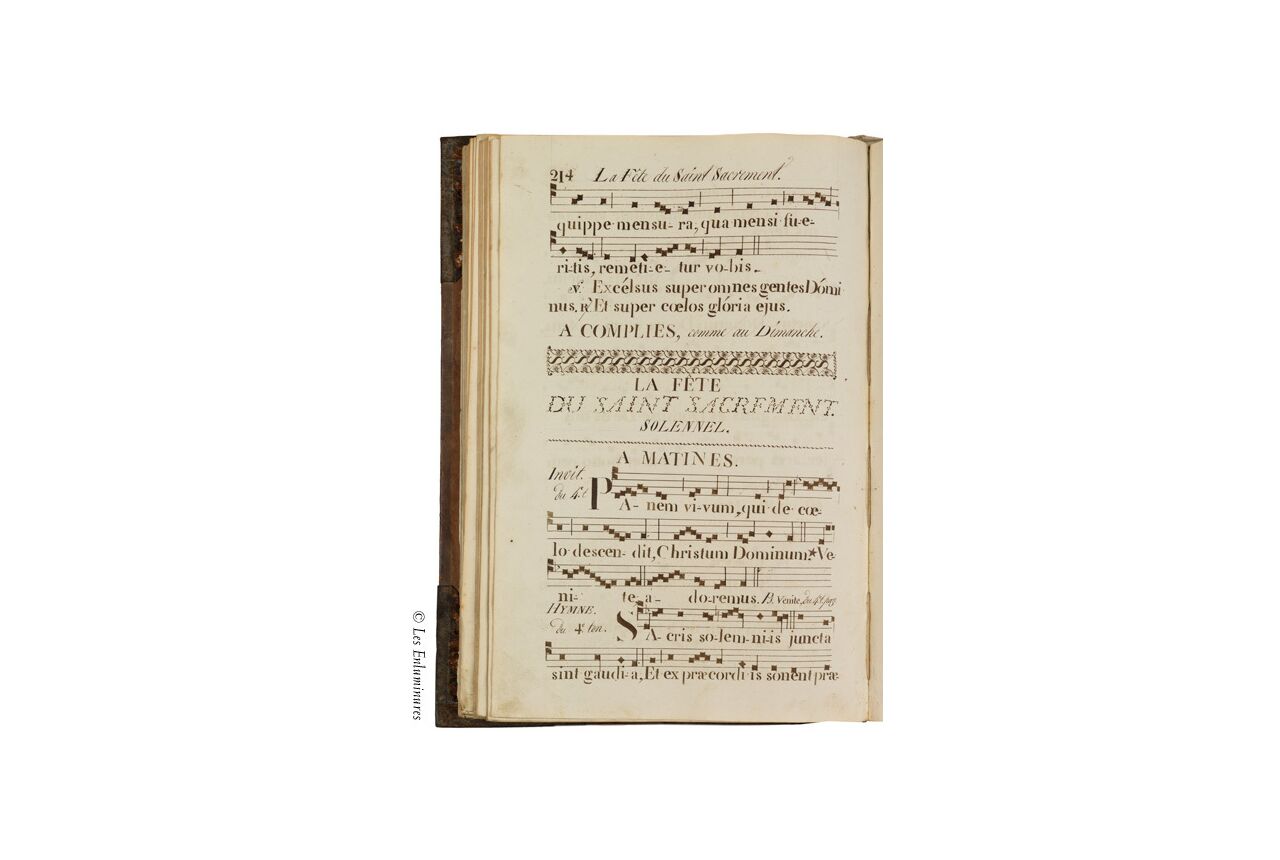 214 La Fête du Saint Sacrement.
quippe mensu-ra, qua mensi fu-e-
ri-tis, remeti-e- tur vo-bis.
℣. Excélsus super omnes gentes Dómi
nus. ℟. Et super cœlos glória ejus.
A COMPLIES, comme au Dimanche.
LA FÊTE
DU SAINT SACREMENT.
SOLENNEL.
A MATINES.
Invit.
du 4.t
PA- nem vi-vum, qui de cœ-
lo descen- dit, Christum Dominum.* Ve-
ni- te a- do-remus. Venite, du 4.t
HYMNE.
du 4.e ton.
SA-cris so-lem-ni-is juncta
sint gaudi-a, Et ex præcordi-is sonent præ-
© Les Enluminures